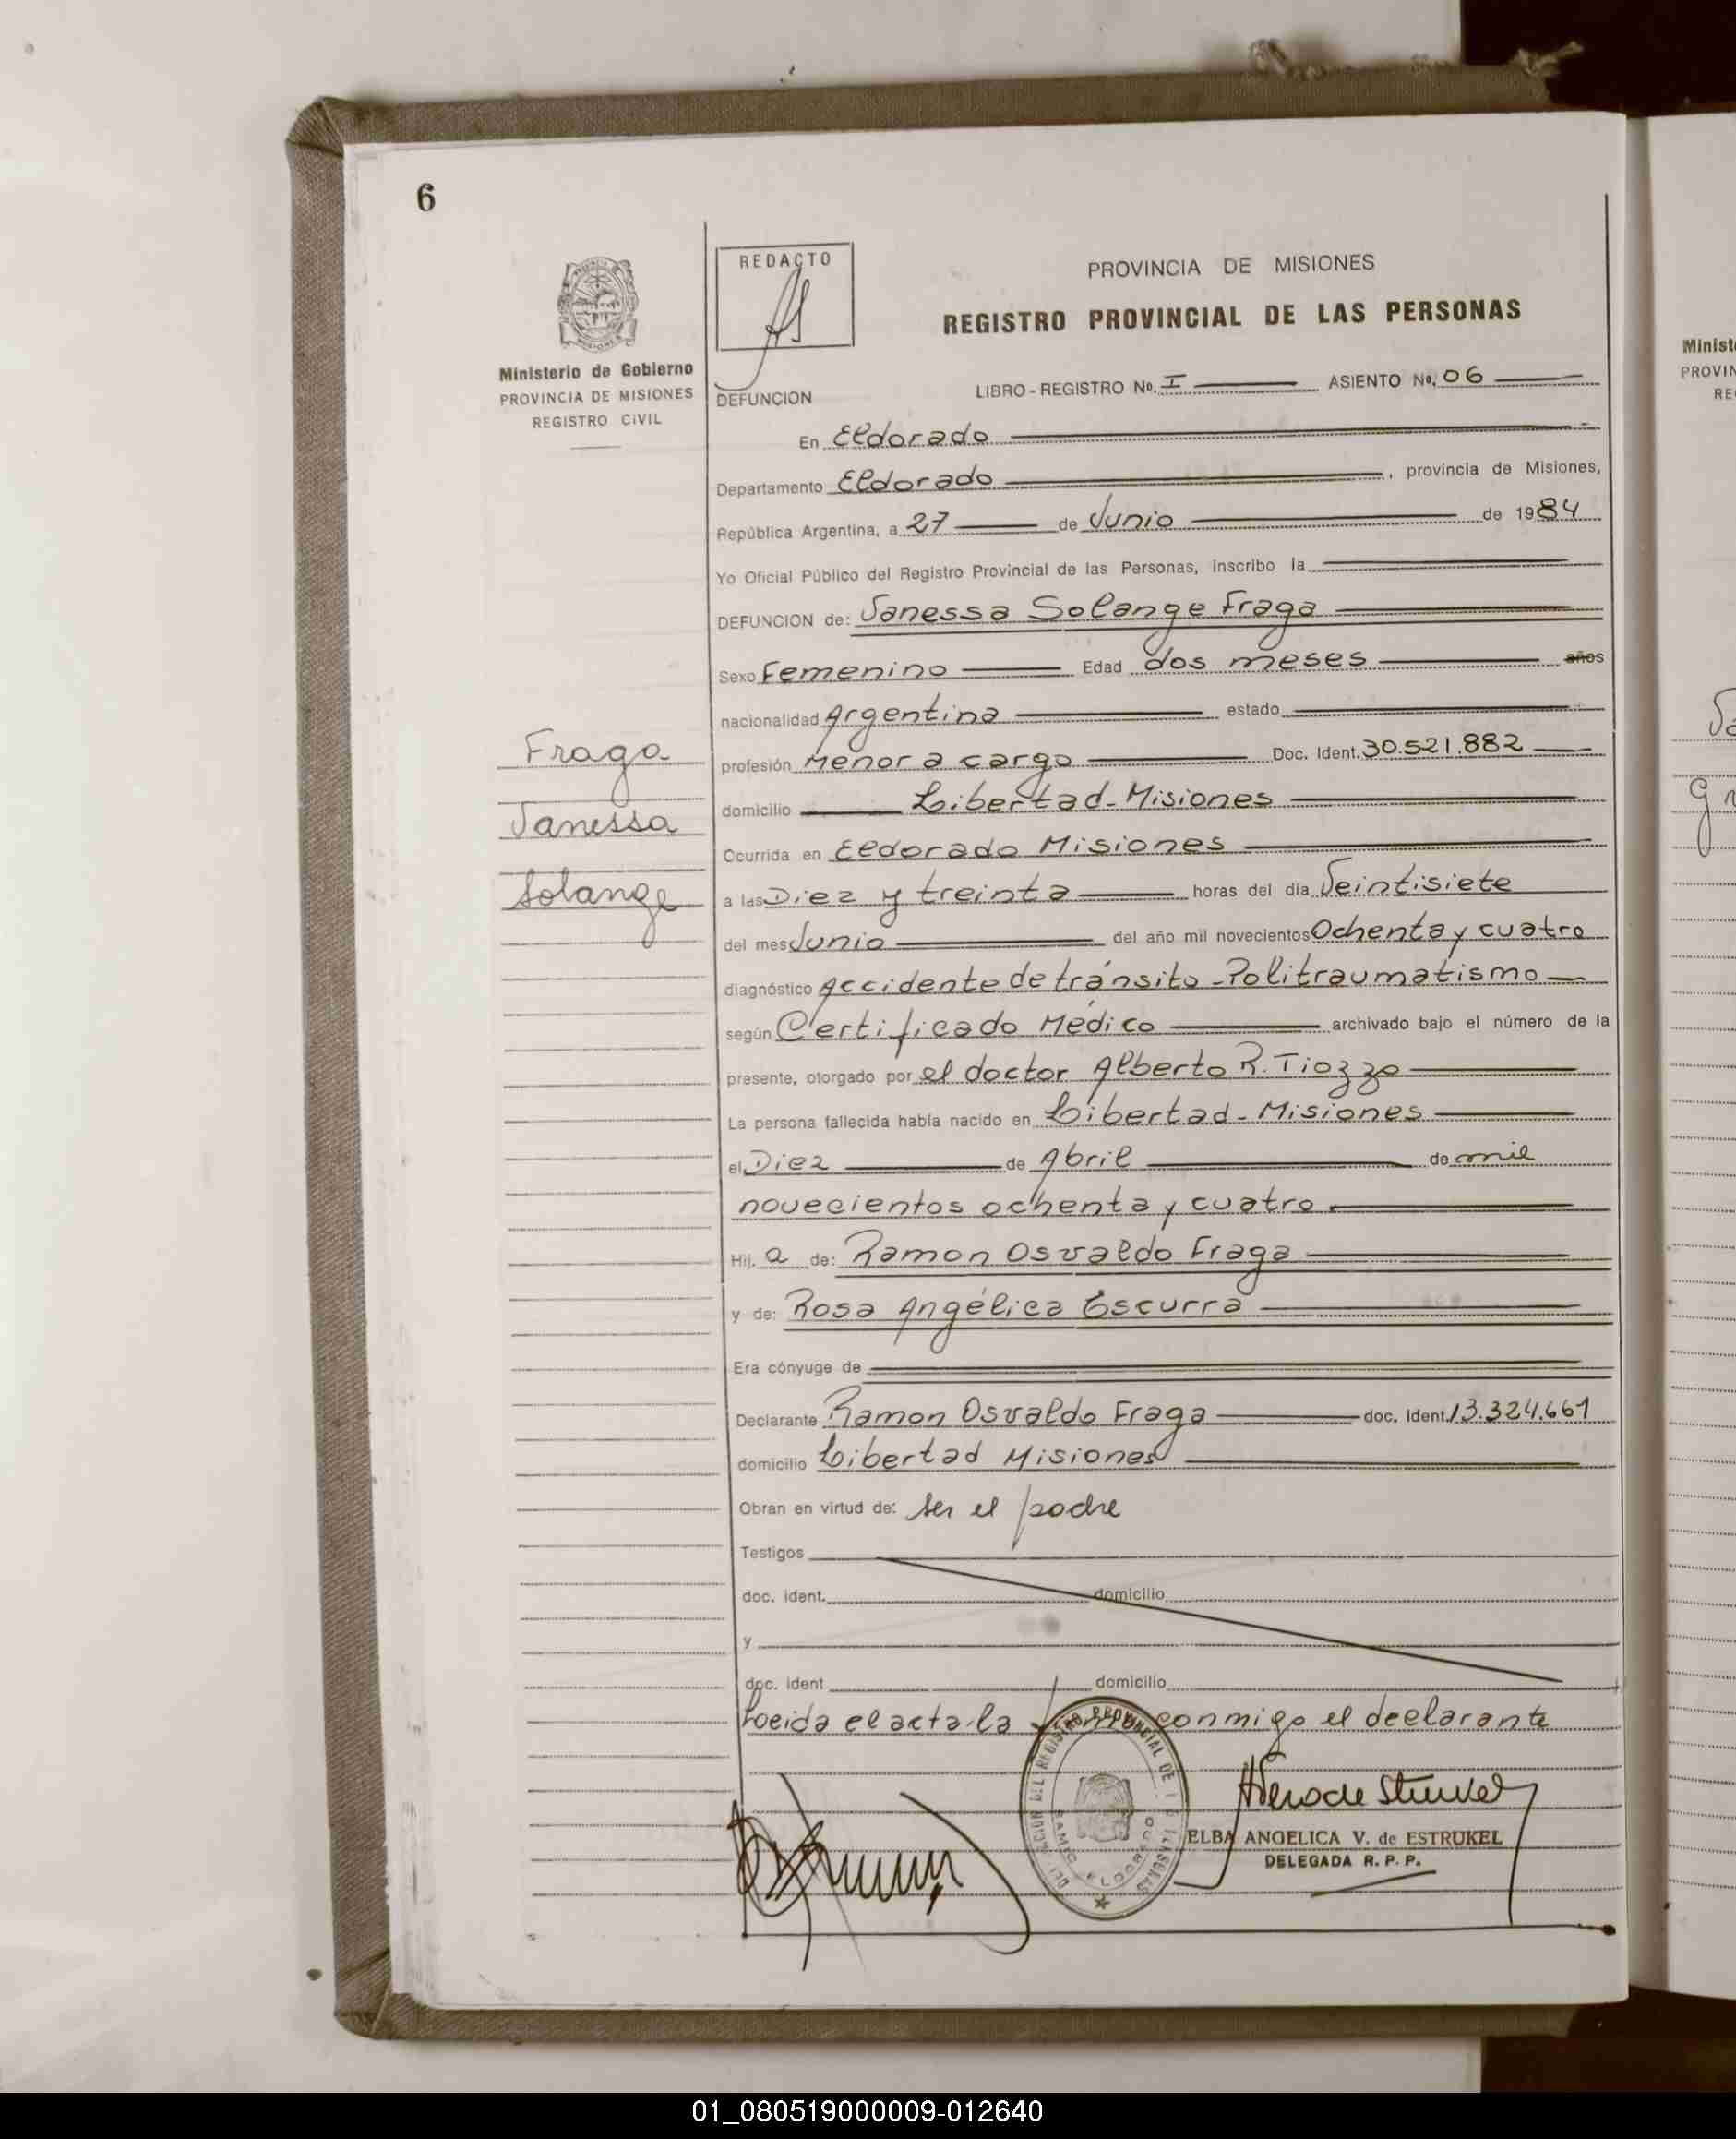 6
REDACTO
PROVINCIA DE MISIONES
REGISTRO PROVINCIAL DE LAS PERSONAS
Ministerio de Gobierno
PROVINCIA DE MISIONES
REGISTRO CIVIL
DEFUNCION
LIBRO - REGISTRO No. I ASIENTO No. 06
En Eldorado
Departamento Eldorado, provincia de Misiones,
República Argentina, a 27 de Junio de 1984
Yo Oficial Público del Registro Provincial de las Personas, inscribo la
DEFUNCION de: Vanessa Solange Fraga
Sexo Femenino Edad dos meses años
nacionalidad Argentina estado
Fraga
Vanessa
Solange
profesión Menor a cargo Doc. Ident. 30.521.882
domicilio Libertad-Misiones
Ocurrida en Eldorado Misiones
a las Diez y treinta horas del día Veintisiete
del mes Junio del año mil novecientos Ochenta y cuatro
diagnóstico Accidente de tránsito-Politraumatismo
según Certificado Médico archivado bajo el número de la
presente, otorgado por el doctor Alberto R. Tiozzo
La persona fallecida había nacido en Libertad-Misiones
el Diez de Abril de mil
novecientos ochenta y cuatro
Hij a de: Ramon Osvaldo Fraga
y de: Rosa Angélica Escurra
Era cónyuge de
Declarante Ramon Osvaldo Fraga doc. ident. 13.324.661
domicilio Libertad Misiones
Obran en virtud de: ser el padre
Testigos
doc. ident. domicilio
y
doc. ident domicilio
Loeida el acta la conmigo el declarante
ELBA ANGELICA V. de ESTRUKEL
DELEGADA R. P. P.
Minist
PROVIN
RE
01_080519000009-012640